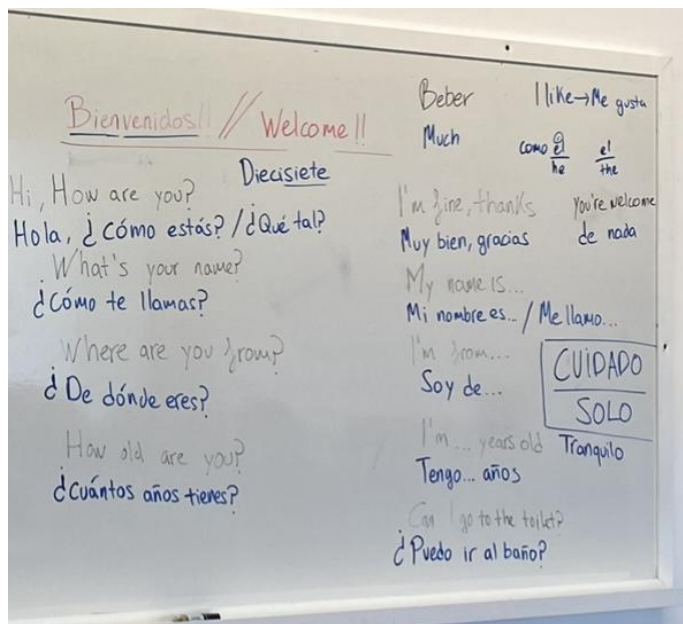 Bienvenidos!! // Welcome!!
Diecisiete
Hi, How are you?
Hola, ¿Cómo estás? / ¿Qué tal?
What's your name?
¿Cómo te llamas?
Where are you from?
¿De dónde eres?
How old are you?
¿Cuántos años tienes?
Beber
I like → Me gusta
Much
como él
he
el
the
I'm fine, thanks
you're welcome
Muy bien, gracias
de nada
My name is...
Mi nombre es... / Me llamo...
I'm from...
Soy de...
CUIDADO
SOLO
I'm ... years old
Tranquilo
Tengo... años
Can I go to the toilet?
¿Puedo ir al baño?